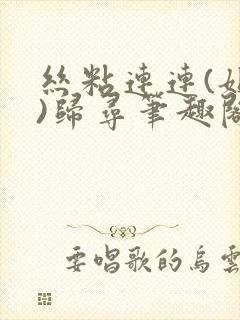 絲粘連連(
)歸尋筆趣閣
要唱歌的烏雲